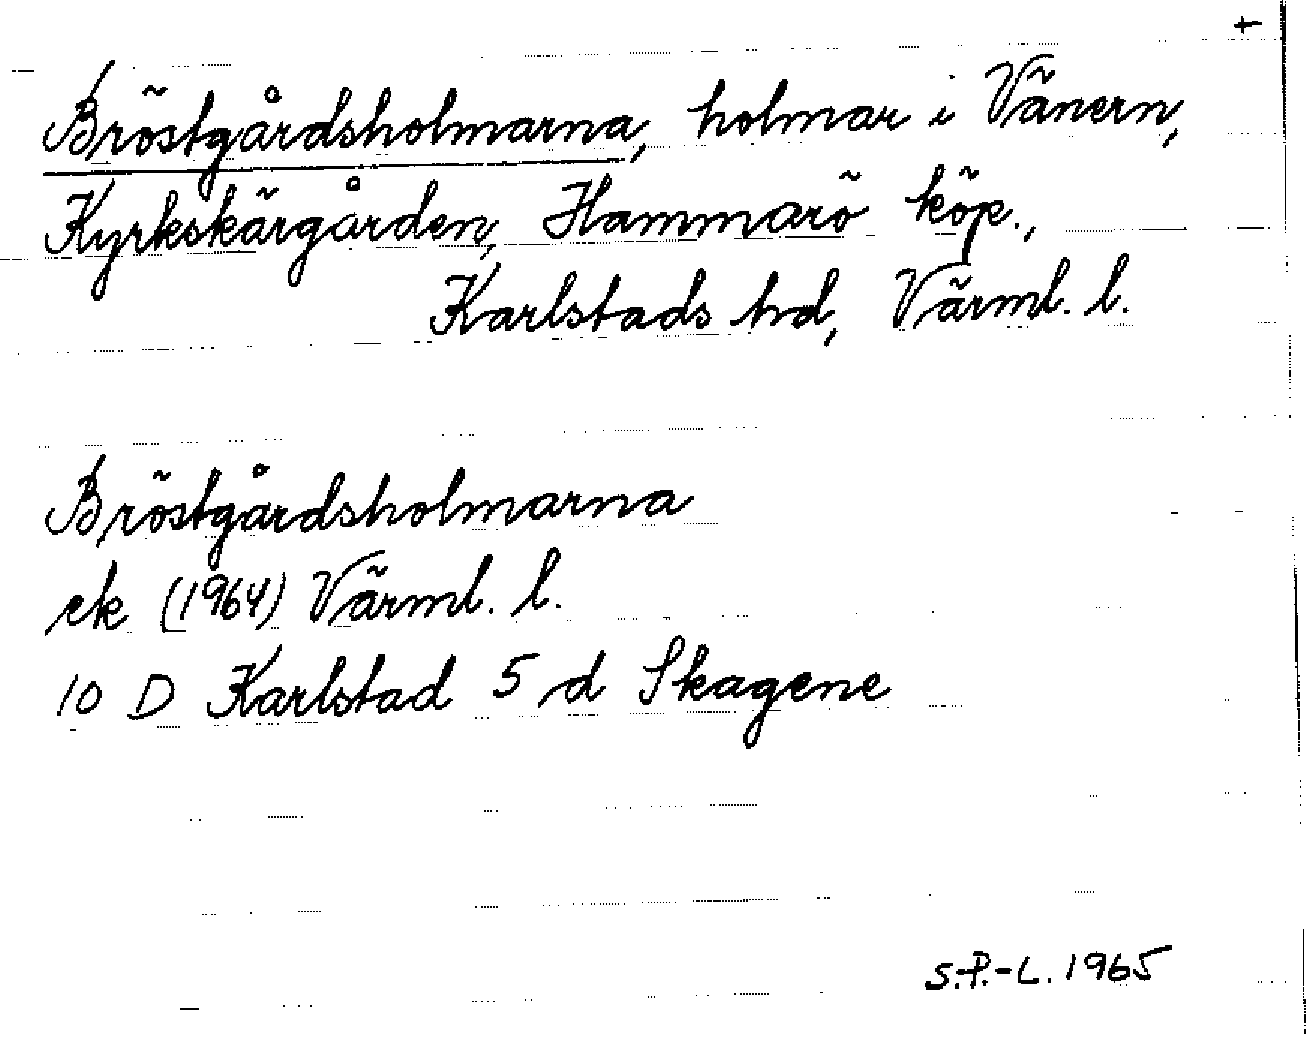 +
Bröstgårdsholmarna, holmar i Vänern,
Kyrkskärgården, Hammarö köp.,
Karlstads hd, Värml. l.
Bröstgårdsholmarna
ek (1964) Värml. l.
10 D Karlstad 5 d Skagene
S.P.-L. 1965